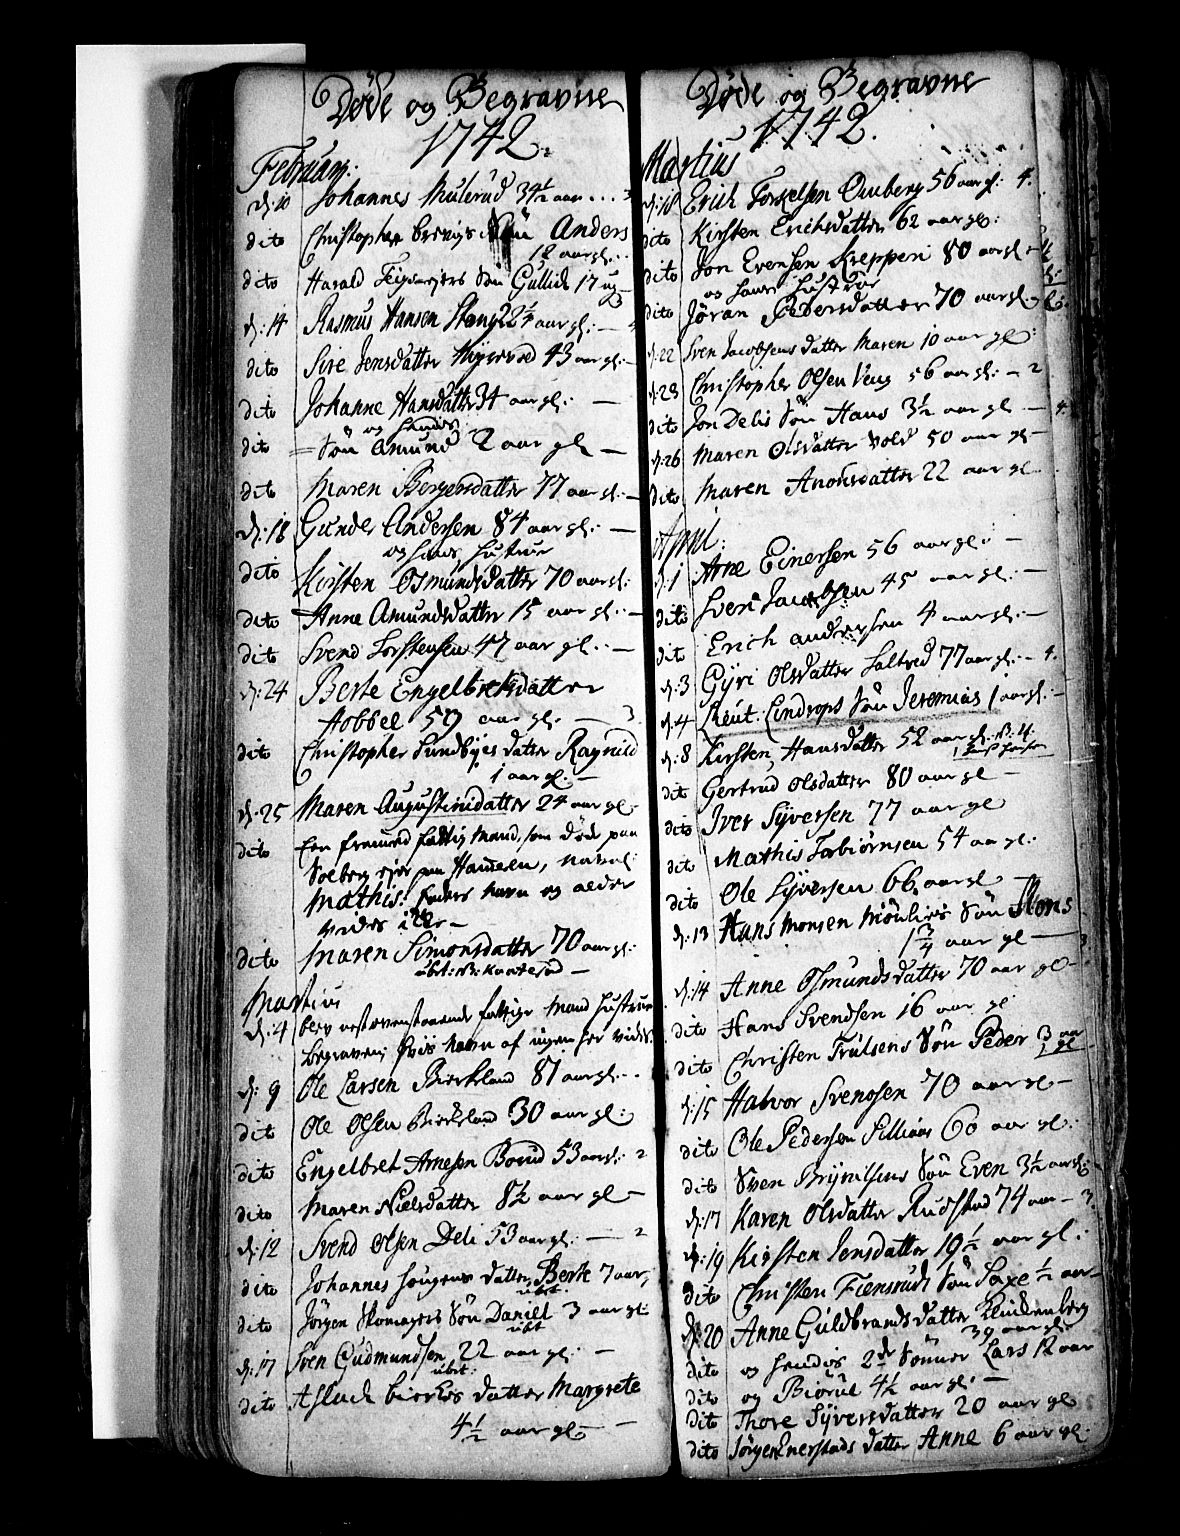 Døde og Begravne
1742.
Februarj:
d: 10 Johannes Mulerud 34½ aar . . . 3
dito Christopher Søn Anders
12 aar gl. . .
dito Harald Søn Gullick 17 ug
d: 14 Rasmus Hansen Stang 22¼ aar gl: —
dito Sire Jensdatter 43 aar gl: —
dito Johanne Hansdatter 34 aar gl: —
og hendis
dito = Søn Amund 2 aar gl —
dito Maren Bergersdatter 77 aar gl: —
d: 18 Gunder Andersen 84 aar gl: —
og hans hustrue
dito Kirsten Osmundsdatter 70 aar gl:
dito Anne Amundsdatter 15 aar gl: —
dito Svend Torstensen 47 aar gl. —
d: 24 Berte Engelbretsdatter
Hobbel 59 aar gl. — 3
dito Christopher Sundbyes datter Raguild
1 aar gl. —
d: 25 Maren Augustinidatter 24 aar gl.
dito Een fremmed fattig Mand, som døde paa
Solberg eje paa , navnl:
Mathis: faders navn og alder
vides icke —
dito Maren Simonsdatter 70 aar gl:
ubt: Kaaterød —
Martius
d: 4 blev næst ovenstaaende fattige Mands hustrue
begraven, hvis navn af ingen her vides.
d: 9 Ole Larsen Bierkeland 81 aar gl. .
dito Ole Olsen Bierkeland 30 aar gl:
dito Engelbret Arnesen Borud 53 aar gl: 2
dito Maren Nielsdatter 8½ aar gl —
d: 12 Svend Olsen Deli 53 aar gl: — 2
dito Johannes datter Berte 7 aar,
ubt.
dito Jørgen Skomagers Søn Daniel 3 aar gl:
ubt
d: 17 Sven Gudmundsen 22 aar gl: —
ubt:
dito Aslach datter Margrete
4½ aar gl. —
Døde og Begravne
1742.
Martius
d: 18 Erich Torgelsen 56 aar gl: 4.
dito Kirsten Erichsdatter 62 aar gl:
dito Jon Evensen Kreppen 80 aar gl
og hans hustrue
dito Jøran Pedersdatter 70 aar gl.
d: 22 Sven Jacobsens datter Maren 10 aar gl:
d: 23 Christopher Olsen Veng 56 aar gl: — 2
dito Jon Delis Søn Hans 3½ aar gl — 4
d: 26 Maren Olsdatter Vold 50 aar gl —
dito Maren Anonsdatter 22 aar gl
April:
d: 1 Arne Einersen 56 aar gl: —
dito Sven Jacobsen 45 aar gl: —
dito Erich Andersen 4 aar gl: —
d: 3 Gyri Olsdatter Saltred 77 aar gl: — 4.
d: 4 Lieut: Lindrops Søn Jeremias 1 aar gl: —
d: 8 Kirsten Hansdatter 52 aar gl.
dito Gertrud Olsdatter 80 aar gl —
dito Iver Syversen 77 aar gl
dito Mathis Torbiørnsen 54 aar gl:
dito Ole Syversen 66 aar gl —
d: 13 Hans Monsen Søn Mons
1¾ aar gl — 3
d: 14 Anne Osmundsdatter 70 aar gl —
dito Hans Svendsen 16 aar gl
dito Christen Trulsens Søn Peder 3 aar
gl
d: 15 Halvor Svendsen 70 aar gl —
dito Ole Pedersen Silliaas 60 aar gl:
dito Sven Brynilsens Søn Even 3½ aar gl:
d: 17 Karen Olsdatter Rudstad 74 aar — 3.
d: 19 Kirsten Jensdatter 19½ aar gl:
dito Christen Fiensrud Søn Saxe ½ aar —
d: 20 Anne Guldbrandsdatter
39 aar gl.
dito og hendis 2de Sønner Lars 12 aar
dito og Biørul 4½ aar gl. —
dito Thore Syversdatter 20 aar gl
dito Jørgen Enerstads datter Anne 6 aar gl: